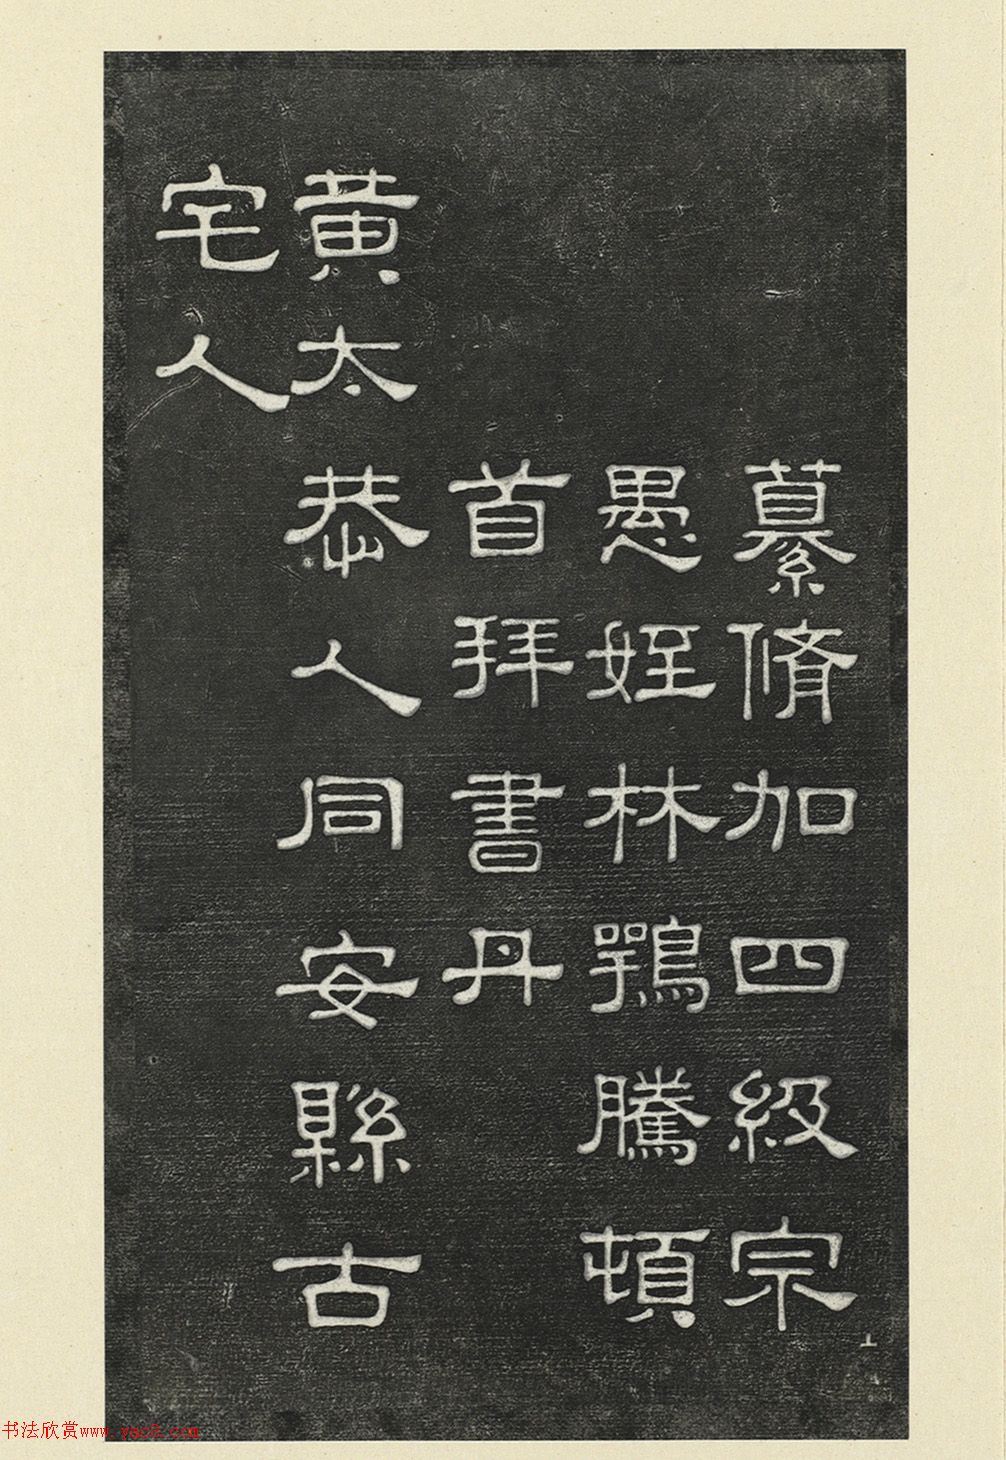 纂脩加四級宗
愚姪林鶚騰頓
首拜書丹
黄太恭人同安縣古
宅人
书法欣赏www.yac8.com